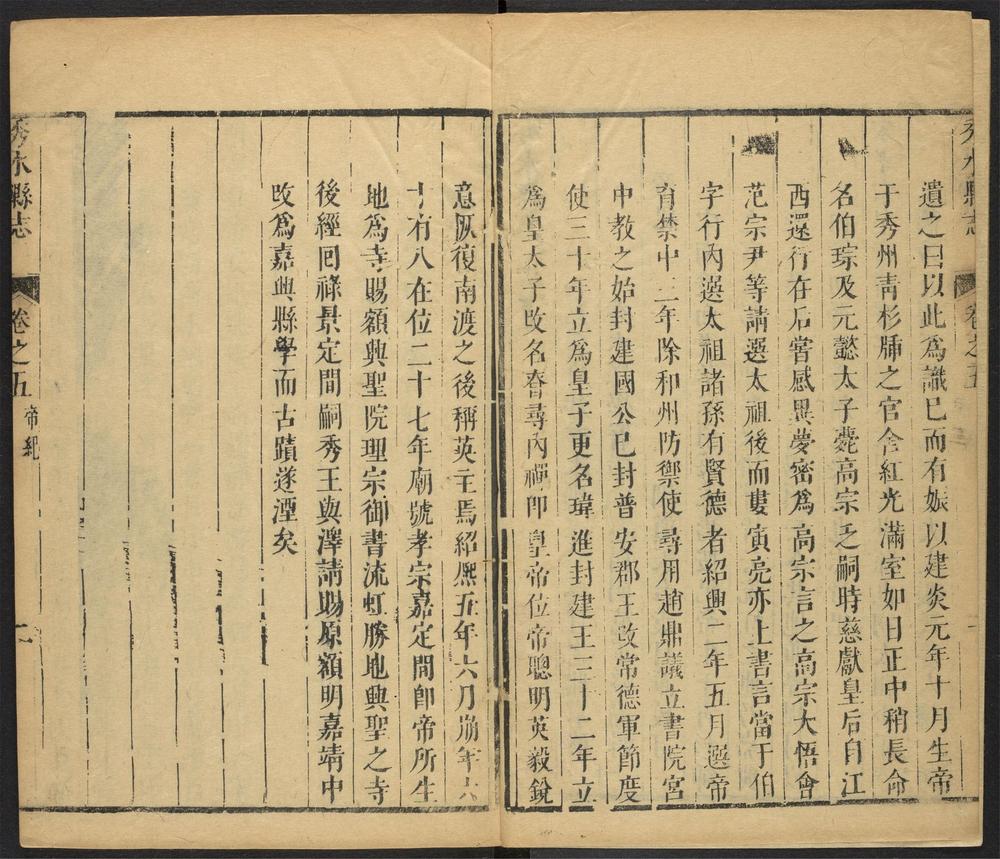 秀水縣志
卷之五
遺之曰以此爲識已而有娠以建炎元年十月生帝
于秀州靑杉牐之官舍紅光滿室如日正中稍長命
名伯琮及元懿太子薨高宗乏嗣時慈獻皇后自江
西還行在后嘗感異夢密爲高宗言之高宗大悟會
范宗尹等請選太祖後而婁寅亮亦上書言當于伯
字行內選太祖諸孫有賢德者紹興二年五月選帝
育禁中三年除和州防禦使尋用趙鼎議立書院宮
中教之始封建國公已封普安郡王改常德軍節度
使三十年立爲皇子更名瑋進封建王三十二年立
爲皇太子改名眘尋內禪即皇帝位帝聰明英毅銳
意恢復南渡之後稱英主焉紹熙五年六月崩年六
十有八在位二十七年廟號孝宗嘉定間即帝所生
地爲寺賜額興聖院理宗御書流虹勝地興聖之寺
後經回祿景定間嗣秀王與澤請賜原額明嘉靖中
改爲嘉興縣學而古蹟遂湮矣
秀水縣志
卷之五
帝紀
二